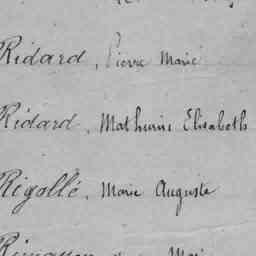 Ridard, Pierre Marie
Ridard, Mathurin Elisabeth
Rigollé, Marie Auguste